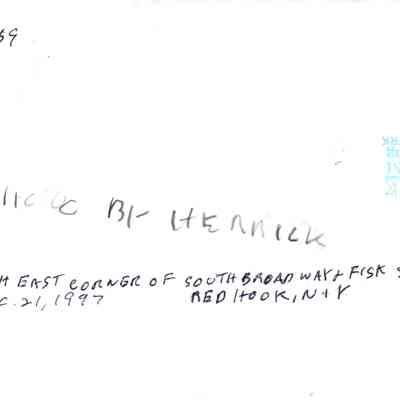 39
BY HERRICK
H EAST CORNER OF SOUTH BROADWAY & FISK S
C. 21, 1997 RED HOOK, N.Y